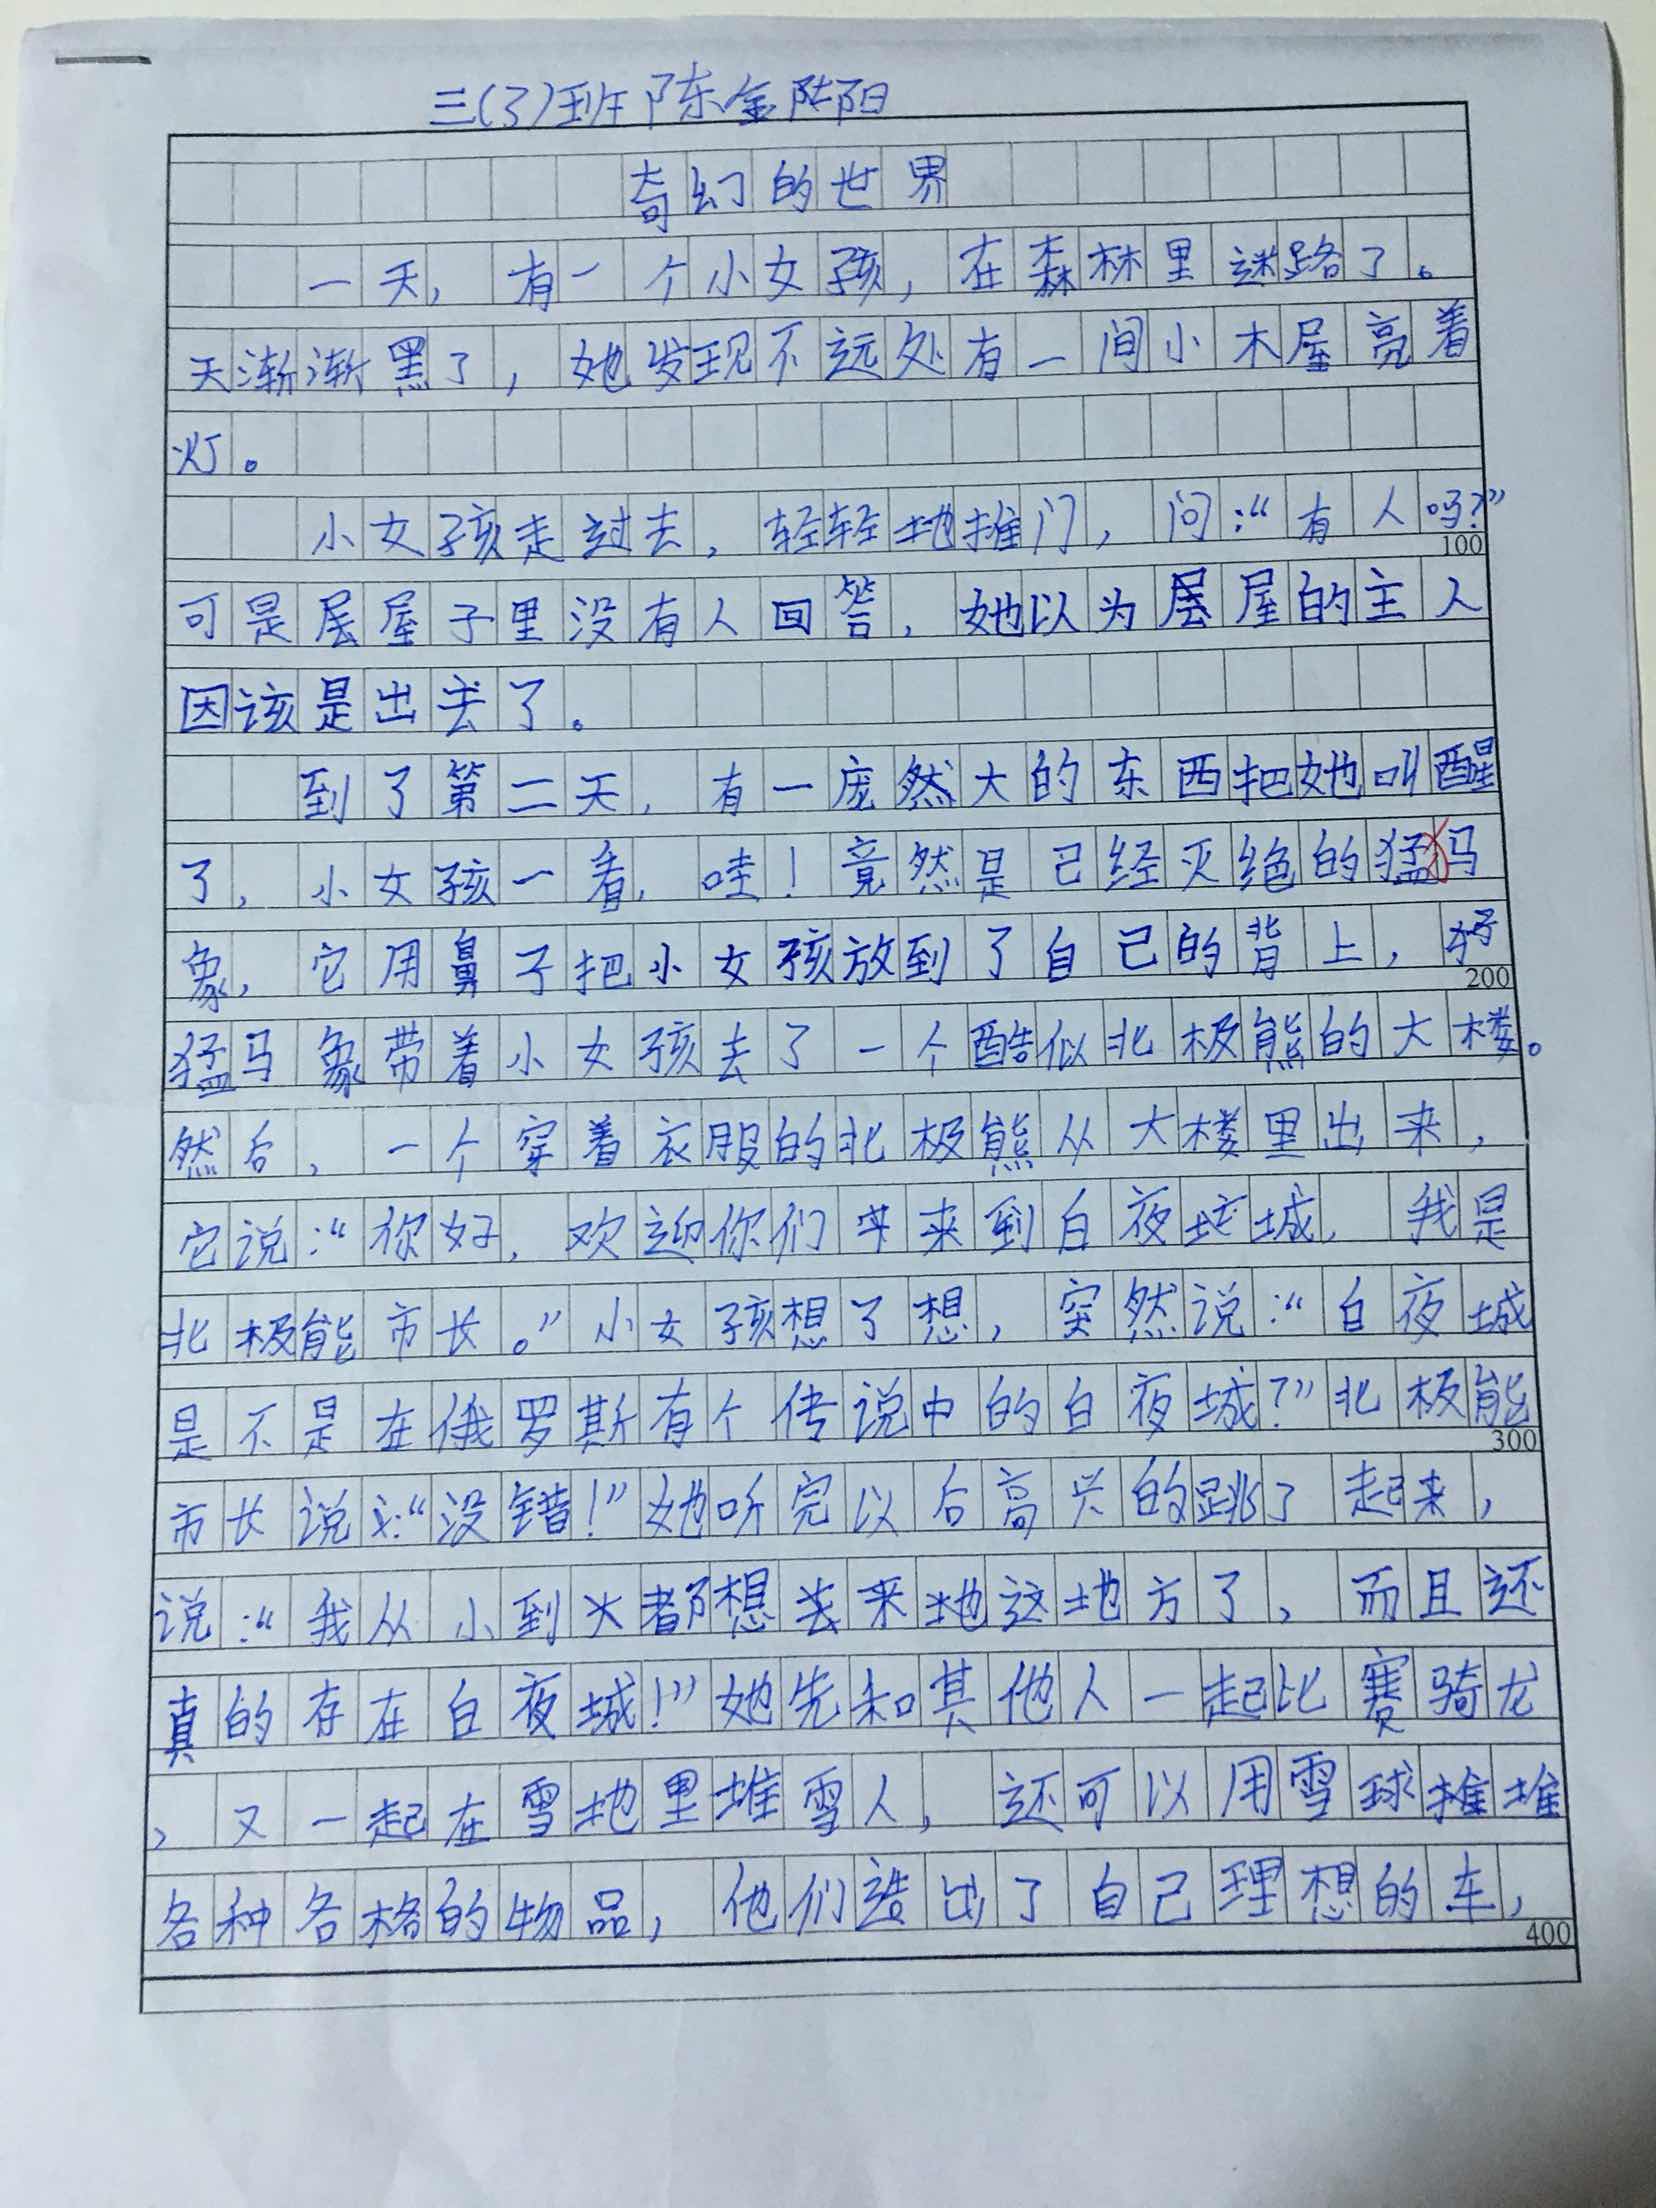 三(3)班陈金阳
奇幻的世界
一天，有一个小女孩，在森林里迷路了。
天渐渐黑了，她发现不远处有一间小木屋亮着
灯。
小女孩走过去，轻轻地推门，问：“有人吗？”
100
可是层屋子里没有人回答，她以为层屋的主人
因该是出去了。
到了第二天，有一庞然大的东西把她叫醒
了，小女孩一看，哇！竟然是已经灭绝的猛犸
象，它用鼻子把小女孩放到了自己的背上，
200
猛马象带着小女孩去了一个酷似北极熊的大楼。
然后，一个穿着衣服的北极熊从大楼里出来，
它说：“你好，欢迎你们来到白夜城，我是
北极能市长。”小女孩想了想，突然说：“白夜城
是不是在俄罗斯有个传说中的白夜城？”北极能
300
市长说：“没错！”她听完以后高兴的跳了起来，
说：“我从小到大都想去来地这地方了，而且还
真的存在白夜城！”她先和其他人一起比赛骑龙
，又一起在雪地里堆雪人，还可以用雪球推堆
各种各格的物品，他们造出了自己理想的车，
400